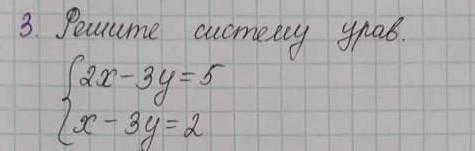 3. Решите систему урав.
2x - 3y = 5
x - 3y = 2